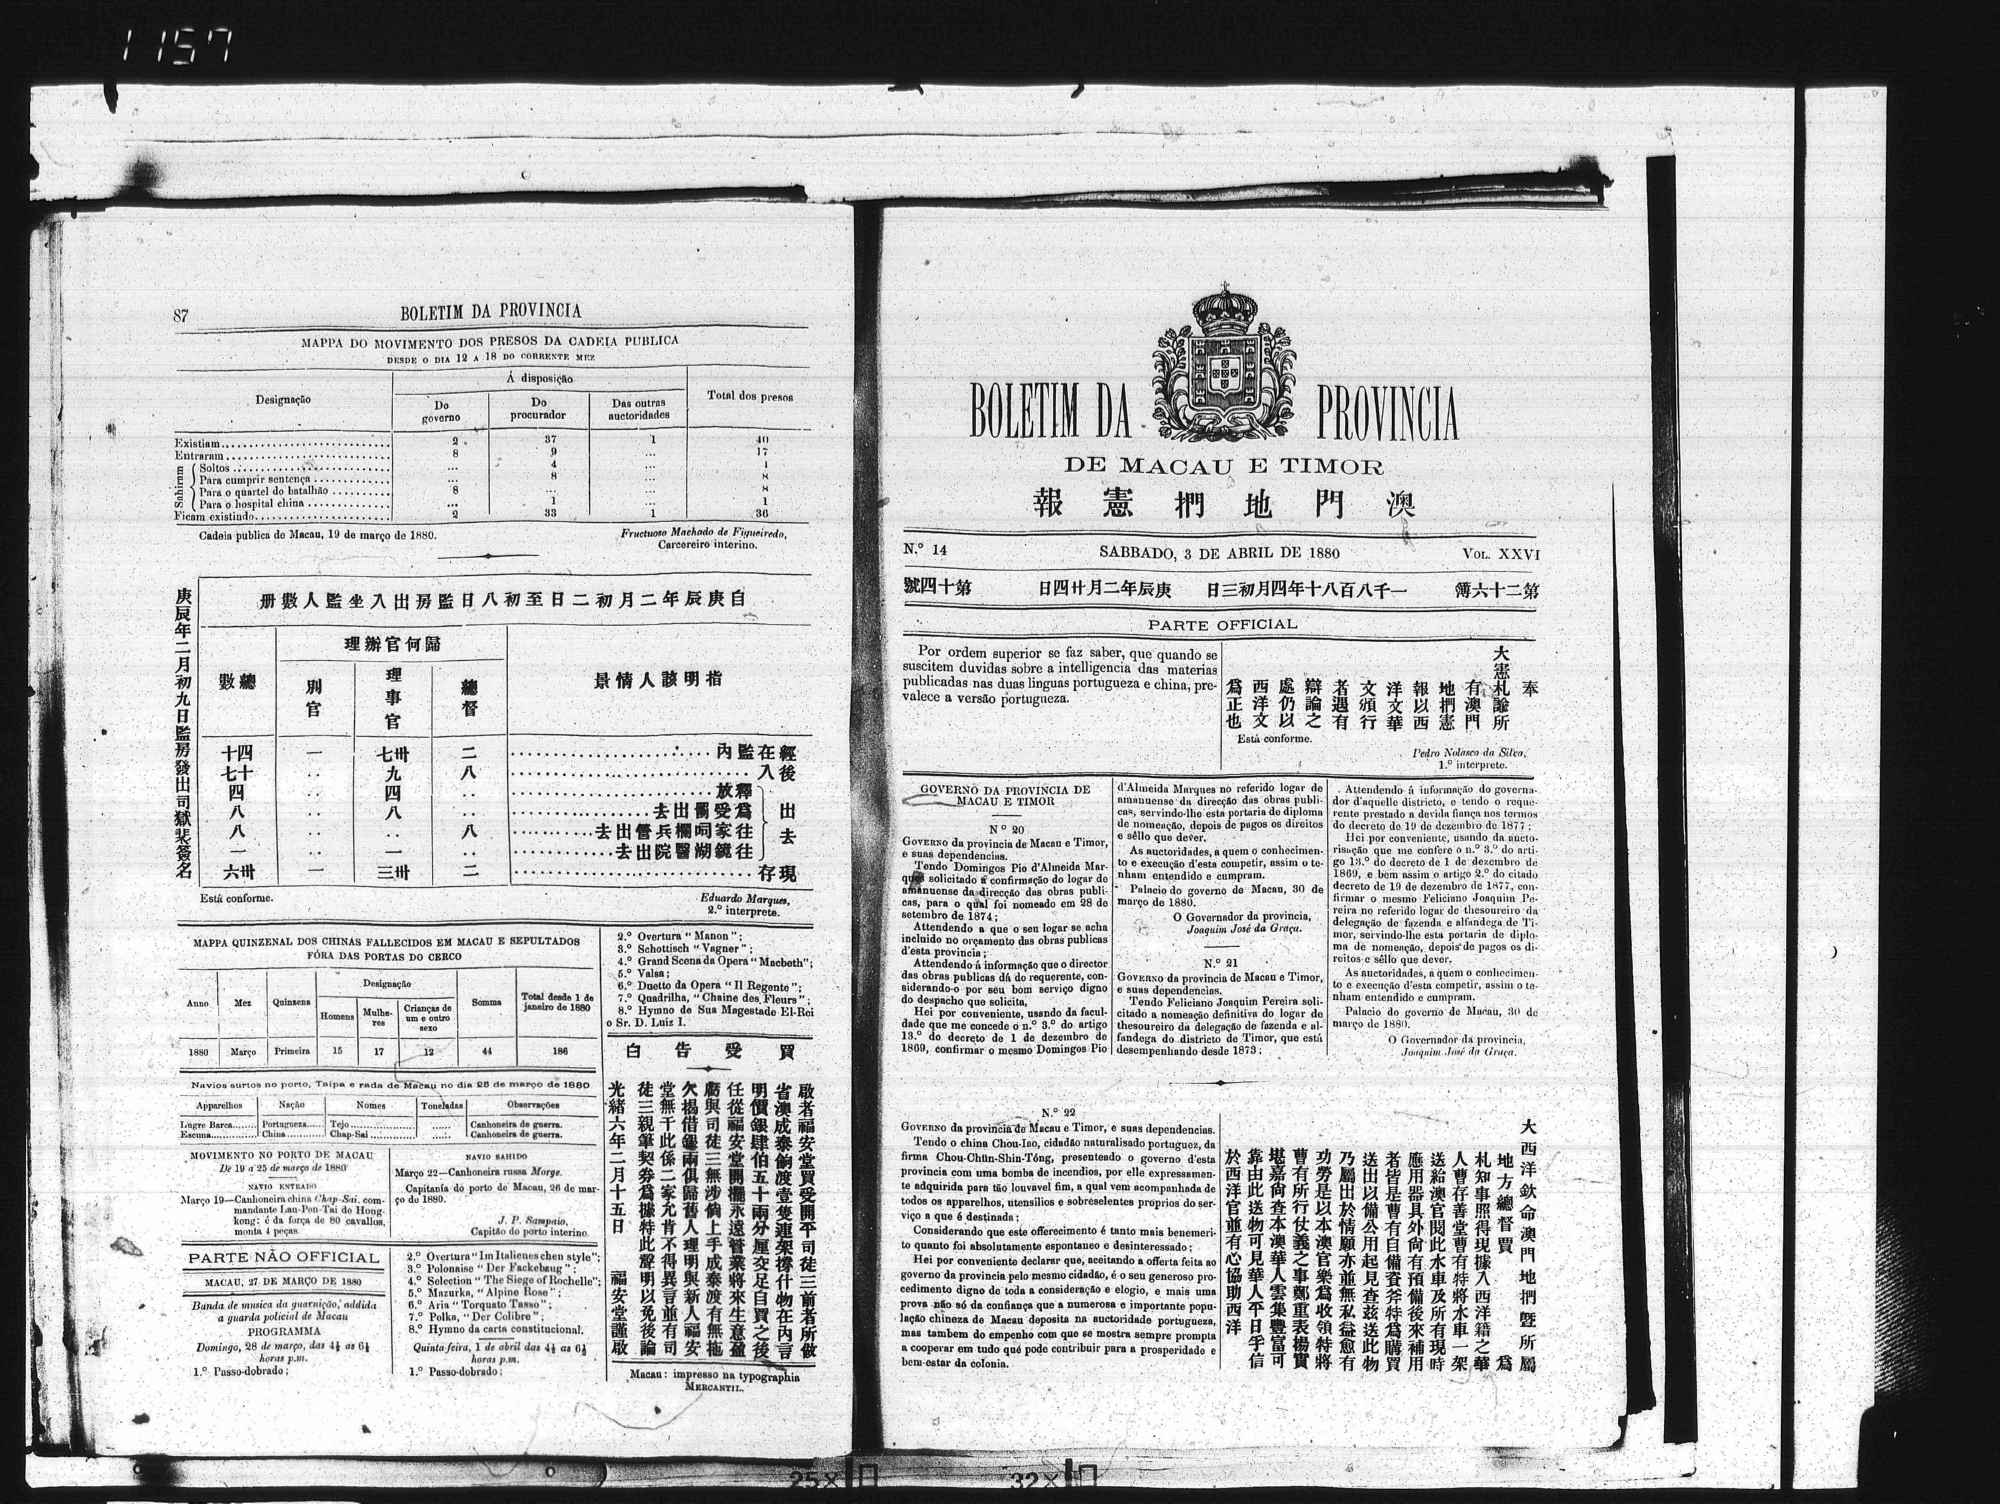 1157
87
BOLETIM DA PROVINCIA
MAPPA DO MOVIMENTO DOS PRESOS DA CADEIA PUBLICA
DESDE O DIA 12 A 18 DO CORRENTE MEZ
Designação
Á disposição
Do governo
Do procurador
Das outras auctoridades
Total dos presos
Existiam 2 37 1 40
Entraram 8 9 ... 17
Sahiram
Soltos ... 4 ...
Para cumprir sentença ... 8 ... 8
Para o quartel do batalhão 8 ... ... 8
Para o hospital china ... 1 ... 1
Ficam existindo 2 33 1 36
Cadeia publica de Macau, 19 de março de 1880.
Fructuoso Machado de Figueiredo,
Carcereiro interino.
庚辰年二月初九日監房發出司獄裴簽名
自庚辰年二月初二日至初八日監房出入坐監人數册
歸何官辦理
總數
別官
理事官
總督
指明該人情景
四十 一 卅七 二 經在監內
十七 .. 九 八 後入
四 .. 四 .. 釋放
八 .. 八 .. 爲受罰出去
八 .. .. 八 往家呞欄兵營出去
一 .. 一 .. 往鏡湖醫院出去
出去
卅六 一 卅三 二 現存
Está conforme.
Eduardo Marques,
2.º interprete.
MAPPA QUINZENAL DOS CHINAS FALLECIDOS EM MACAU E SEPULTADOS
FÓRA DAS PORTAS DO CERCO
Anno
Mez
Quinzena
Designação
Homens
Mulheres
Crianças de um e outro sexo
Somma
Total desde 1 de janeiro de 1880
1880 Março Primeira 15 17 12 44 186
Navios surtos no porto, Taipa e rada de Macau no dia 26 de março de 1880
Apparelhos Nação Nomes Toneladas Observações
Lugre Barca Portugueza Tejo ...... Canhoneira de guerra.
Escuna China Chap-Sai ...... Canhoneira de guerra.
MOVIMENTO NO PORTO DE MACAU
De 19 a 25 de março de 1880
NAVIO ENTRADO
Março 19—Canhoneira china Chap-Sai, com-
mandante Lau-Pon-Tai de Hong-
kong: é da força de 80 cavallos,
monta 4 peças.
NAVIO SAHIDO
Março 22—Canhoneira russa Morge.
Capitania do porto de Macau, 26 de mar-
ço de 1880.
J. P. Sampaio,
Capitão do porto interino.
PARTE NÃO OFFICIAL
MACAU, 27 DE MARÇO DE 1880
Banda de musica da guarnição, addida
a guarda policial de Macau
PROGRAMMA
Domingo, 28 de março, das 4½ as 6½
horas p.m.
1.º Passo-dobrado;
2.º Overtura "Im Italieneschen style";
3.º Polonaise "Der Fackebaug";
4.º Selection "The Siege of Rochelle";
5.º Mazurka, "Alpine Rose";
6.º Aria "Torquato Tasso";
7.º Polka, "Der Colibre";
8.º Hymno da carta constitucional.
Quinta-feira, 1 de abril das 4½ as 6½
horas p.m.
1.º Passo-dobrado;
2.º Overtura "Manon";
3.º Schottisch "Vagner";
4.º Grand Scena da Opera "Macbeth";
5.º Valsa;
6.º Duetto da Opera "Il Regente";
7.º Quadrilha, "Chaine des Fleurs";
8.º Hymno de Sua Magestade El-Rei
o Sr. D. Luiz I.
買受告白
啟者福安堂買受開平司徒三前者所做
省澳成泰餉渡壹隻連架撐什物在內言
明價銀肆伯五十兩分厘交足自買之後
任從福安堂開擺永遠營業將來生意盈
虧與司徒三無涉倘上手成泰渡有無拖
欠揭借銀兩俱歸舊人理明與新人福安
堂無干此係二家允肯不得異言並有司
徒三親筆契券爲據特此聲明以免後論
光緒六年二月十五日 福安堂謹啟
Macau: impresso na typographia
MERCANTIL.
BOLETIM DA PROVINCIA
DE MACAU E TIMOR
澳門地捫憲報
N.º 14
SABBADO, 3 DE ABRIL DE 1880
VOL. XXVI
第二十六簿 一千八百八十年四月初三日 庚辰年二月廿四日 第十四號
PARTE OFFICIAL
Por ordem superior se faz saber, que quando se
suscitem duvidas sobre a intelligencia das materias
publicadas nas duas linguas portugueza e china, pre-
valece a versão portugueza.
奉
大憲札諭所
有澳門
地捫憲
報以西
洋文華
文頒行
者遇有
辯論之
處仍以
西洋文
爲正也
Está conforme.
Pedro Nolasco da Silva,
1.º interprete.
GOVERNO DA PROVINCIA DE
MACAU E TIMOR
N.º 20
GOVERNO da provincia de Macau e Timor,
e suas dependencias.
Tendo Domingos Pio d'Almeida Mar-
ques solicitado a confirmação do logar de
amanuense da direcção das obras publi-
cas, para o qual foi nomeado em 28 de
setembro de 1874;
Attendendo a que o seu logar se acha
incluido no orçamento das obras publicas
d'esta provincia;
Attendendo á informação que o director
das obras publicas dá do requerente, con-
siderando-o por seu bom serviço digno
do despacho que solicita,
Hei por conveniente, usando da facul-
dade que me concede o n.º 3.º do artigo
13.º do decreto de 1 de dezembro de
1869, confirmar o mesmo Domingos Pio
d'Almeida Marques no referido logar de
amanuense da direcção das obras publi-
cas, servindo-lhe esta portaria de diploma
de nomeação, depois de pagos os direitos
e sêllo que dever.
As auctoridades, a quem o conhecimen-
to e execução d'esta competir, assim o te-
nham entendido e cumpram.
Palacio do governo de Macau, 30 de
março de 1880.
O Governador da provincia,
Joaquim José da Graça.
N.º 21
GOVERNO da provincia de Macau e Timor,
e suas dependencias.
Tendo Feliciano Joaquim Pereira soli-
citado a nomeação definitiva do logar de
thesoureiro da delegação de fazenda e al-
fandega do districto de Timor, que está
desempenhando desde 1873;
Attendendo á informação do governa-
dor d'aquelle districto, e tendo o reque-
rente prestado a devida fiança nos termos
do decreto de 19 de dezembro de 1877;
Hei por conveniente, usando da aucto-
risação que me confere o n.º 3.º do arti-
go 13.º do decreto de 1 de dezembro de
1869, e bem assim o artigo 2.º do citado
decreto de 19 de dezembro de 1877, con-
firmar o mesmo Feliciano Joaquim Pe-
reira no referido logar de thesoureiro da
delegação de fazenda e alfandega de Ti-
mor, servindo-lhe esta portaria de diplo-
ma de nomeação, depois de pagos os di-
reitos e sêllo que dever.
As auctoridades, a quem o conhecimen-
to e execução d'esta competir, assim o te-
nham entendido e cumpram.
Palacio do governo de Macau, 30 de
março de 1880.
O Governador da provincia,
Joaquim José da Graça.
N.º 22
GOVERNO da provincia de Macau e Timor, e suas dependencias.
Tendo o china Chou-Iao, cidadão naturalisado portuguez, da
firma Chou-Chün-Shin-Tóng, presenteado o governo d'esta
provincia com uma bomba de incendios, por elle expressamen-
te adquirida para tão louvavel fim, a qual vem acompanhada de
todos os apparelhos, utensilios e sobreselentes proprios do ser-
viço a que é destinada;
Considerando que este offerecimento é tanto mais benemeri-
to quanto foi absolutamente espontaneo e desinteressado;
Hei por conveniente declarar que, aceitando a offerta feita ao
governo da provincia pelo mesmo cidadão, é o seu generoso pro-
cedimento digno de toda a consideração e elogio, e mais uma
prova não só da confiança que a numerosa e importante popu-
lação chineza de Macau deposita na auctoridade portugueza,
mas tambem do empenho com que se mostra sempre prompta
a cooperar em tudo quê pode contribuir para a prosperidade e
bem-estar da colonia.
大西洋欽命澳門地捫暨所屬
地方總督賈 爲
札知事照得現據入西洋籍之華
人曹存善堂曹有特將水車一架
送給澳官閱此水車及所有現時
應用器具外尙有預備後來補用
者皆是曹有自備資斧特爲購買
送出以備公用起見查茲送此物
乃屬出於情願亦並無私益愈有
功勞是以本澳官樂爲收領特將
曹有所行仗義之事鄭重表揚實
堪嘉尙查本澳華人雲集豐富可
靠由此送物可見華人平日孚信
於西洋官並有心協助西洋
25× 32×